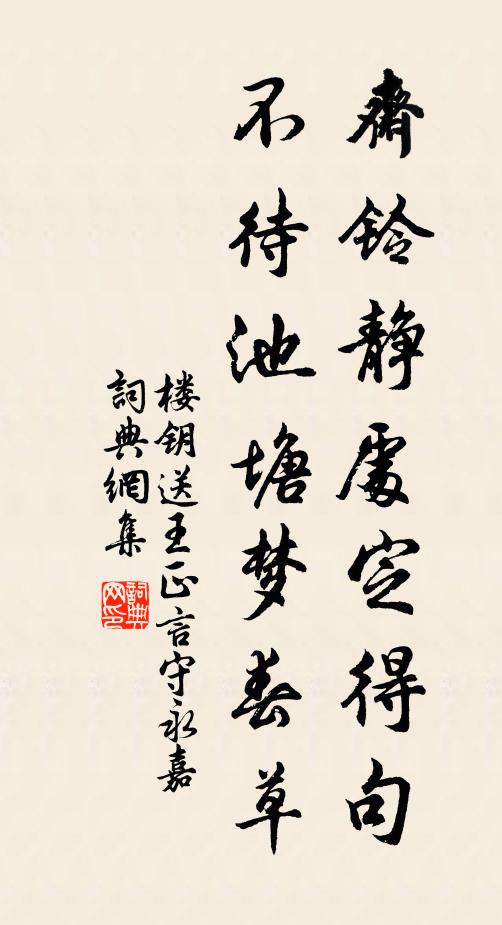 齋铃静處定得句
不待池塘梦春草
楼钥送王正言守永嘉
詞典網集
詞典
网印